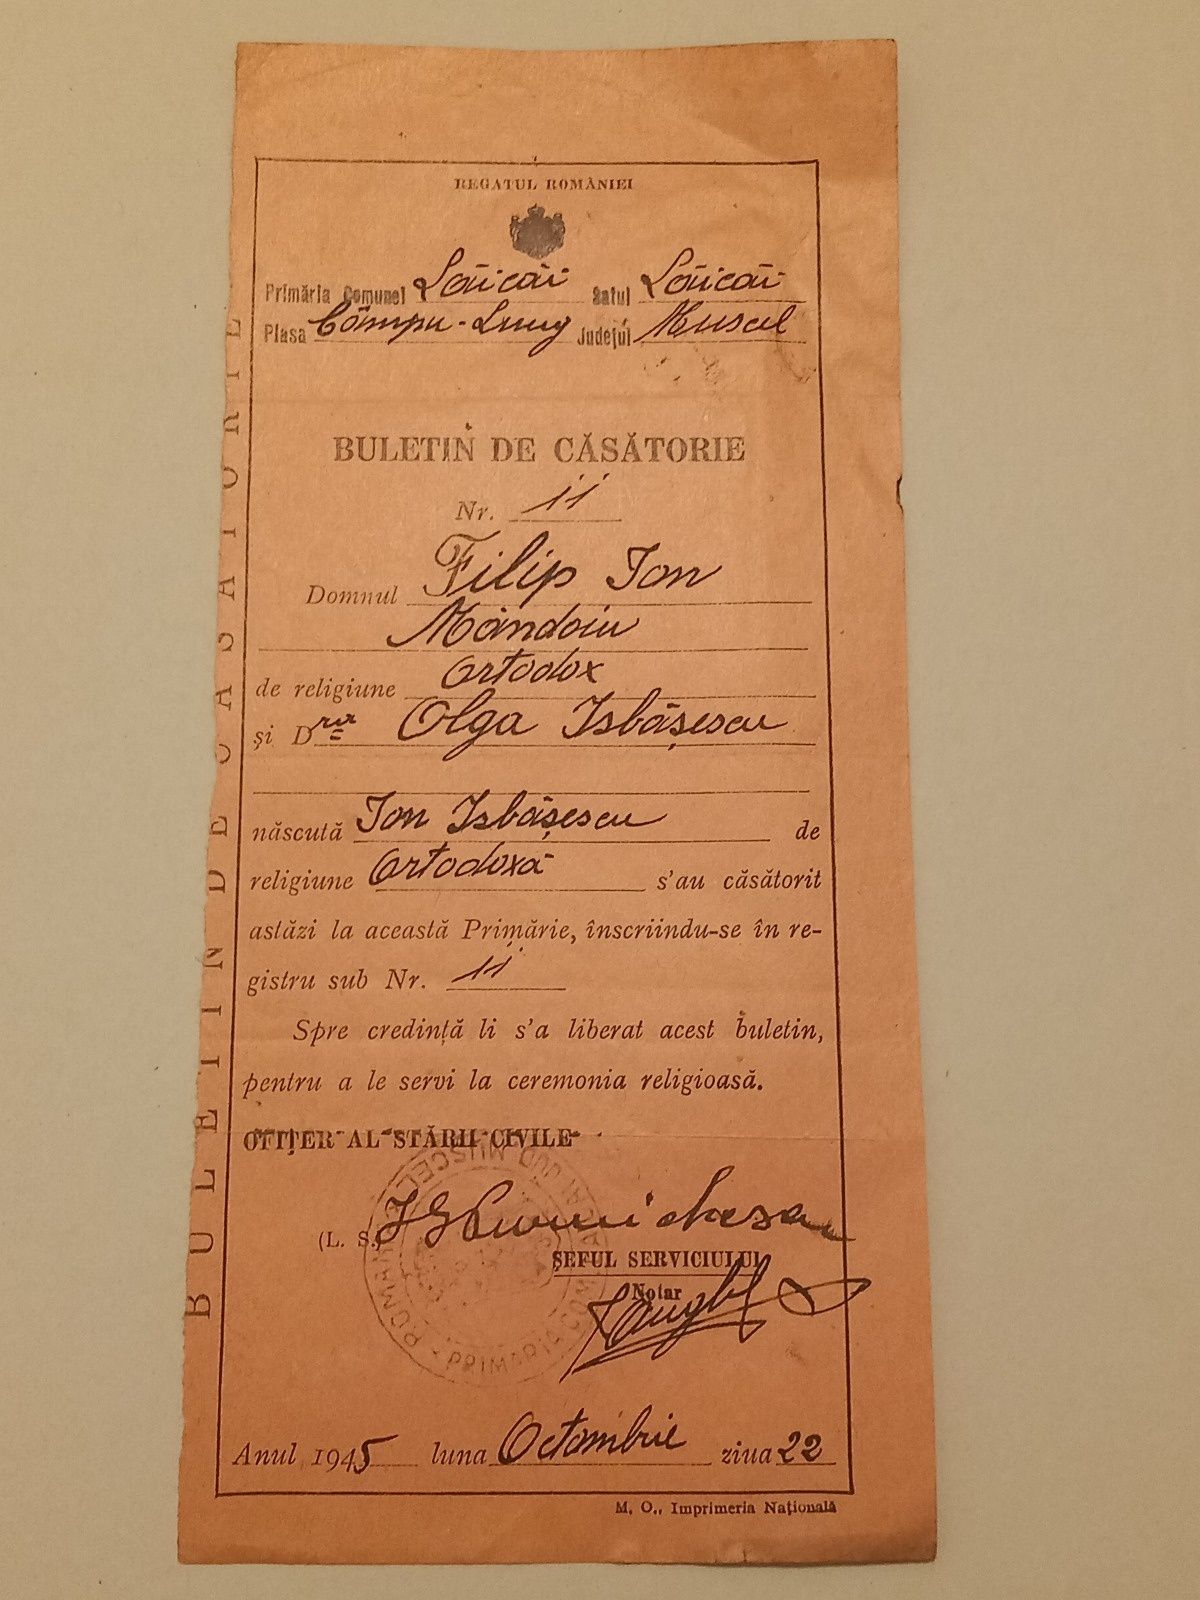 REGATUL ROMÂNIEI
Primăria Comunei Lăicăi Satul Lăicăi
Plasa Câmpu-Lung Județul Muscel
BULETIN DE CĂSĂTORIE
Nr. 11
Domnul Filip Ion
Măndoiu
de religiune Ortodox
și D ra Olga Isbășescu
născută Ion Isbășescu de
religiune Ortodoxă s'au căsătorit
astăzi la această Primărie, înscriindu-se în re-
gistru sub Nr. 11
Spre credință li s'a liberat acest buletin,
pentru a le servi la ceremonia religioasă.
OFIȚER AL STĂRII CIVILE
(L. S.)
ȘEFUL SERVICIULUI
Notar
Anul 1945 luna Octombrie ziua 22
M. O., Imprimeria Națională
BULETIN DE CĂSĂTORIE